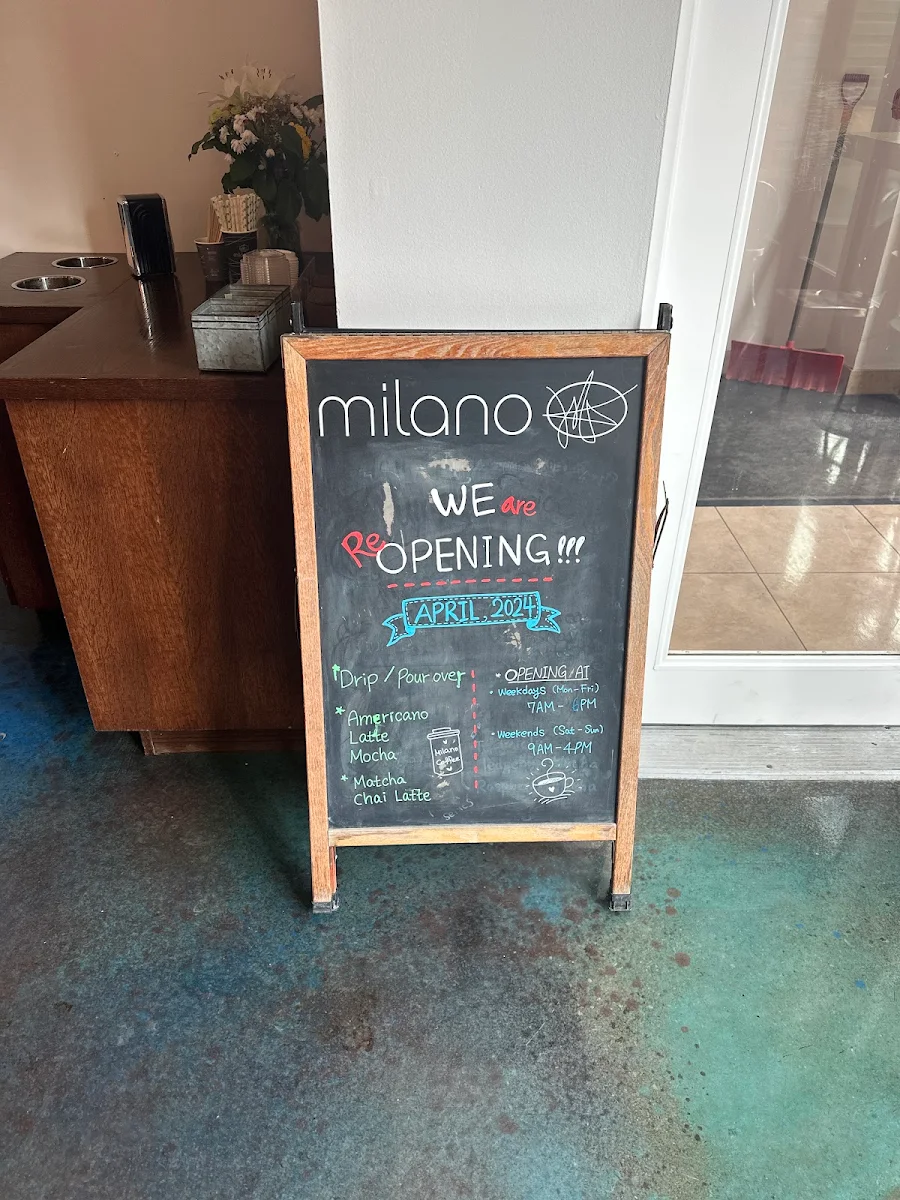 milano
WE are
ReOPENING!!!
APRIL, 2024
* Drip / Pour over
* Americano
Latte
Mocha
* Matcha
Chai Latte
Milano
Coffee
* OPENING AT
• Weekdays (Mon-Fri)
7AM - 6PM
• Weekends (Sat - Sun)
9AM-4PM